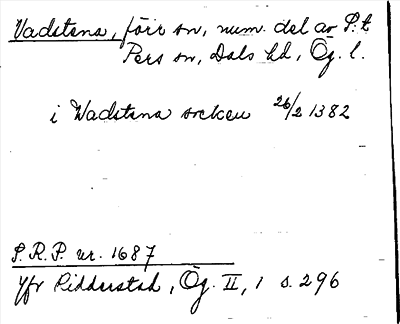 Vadstena, förr sn, num. del av S:t
Pers sn, Dals hd, Ög. l.
i Wadstena socken 26/2 1382
S.R.P. nr. 1687
Jfr Ridderstad, Ög. II, 1 s. 296